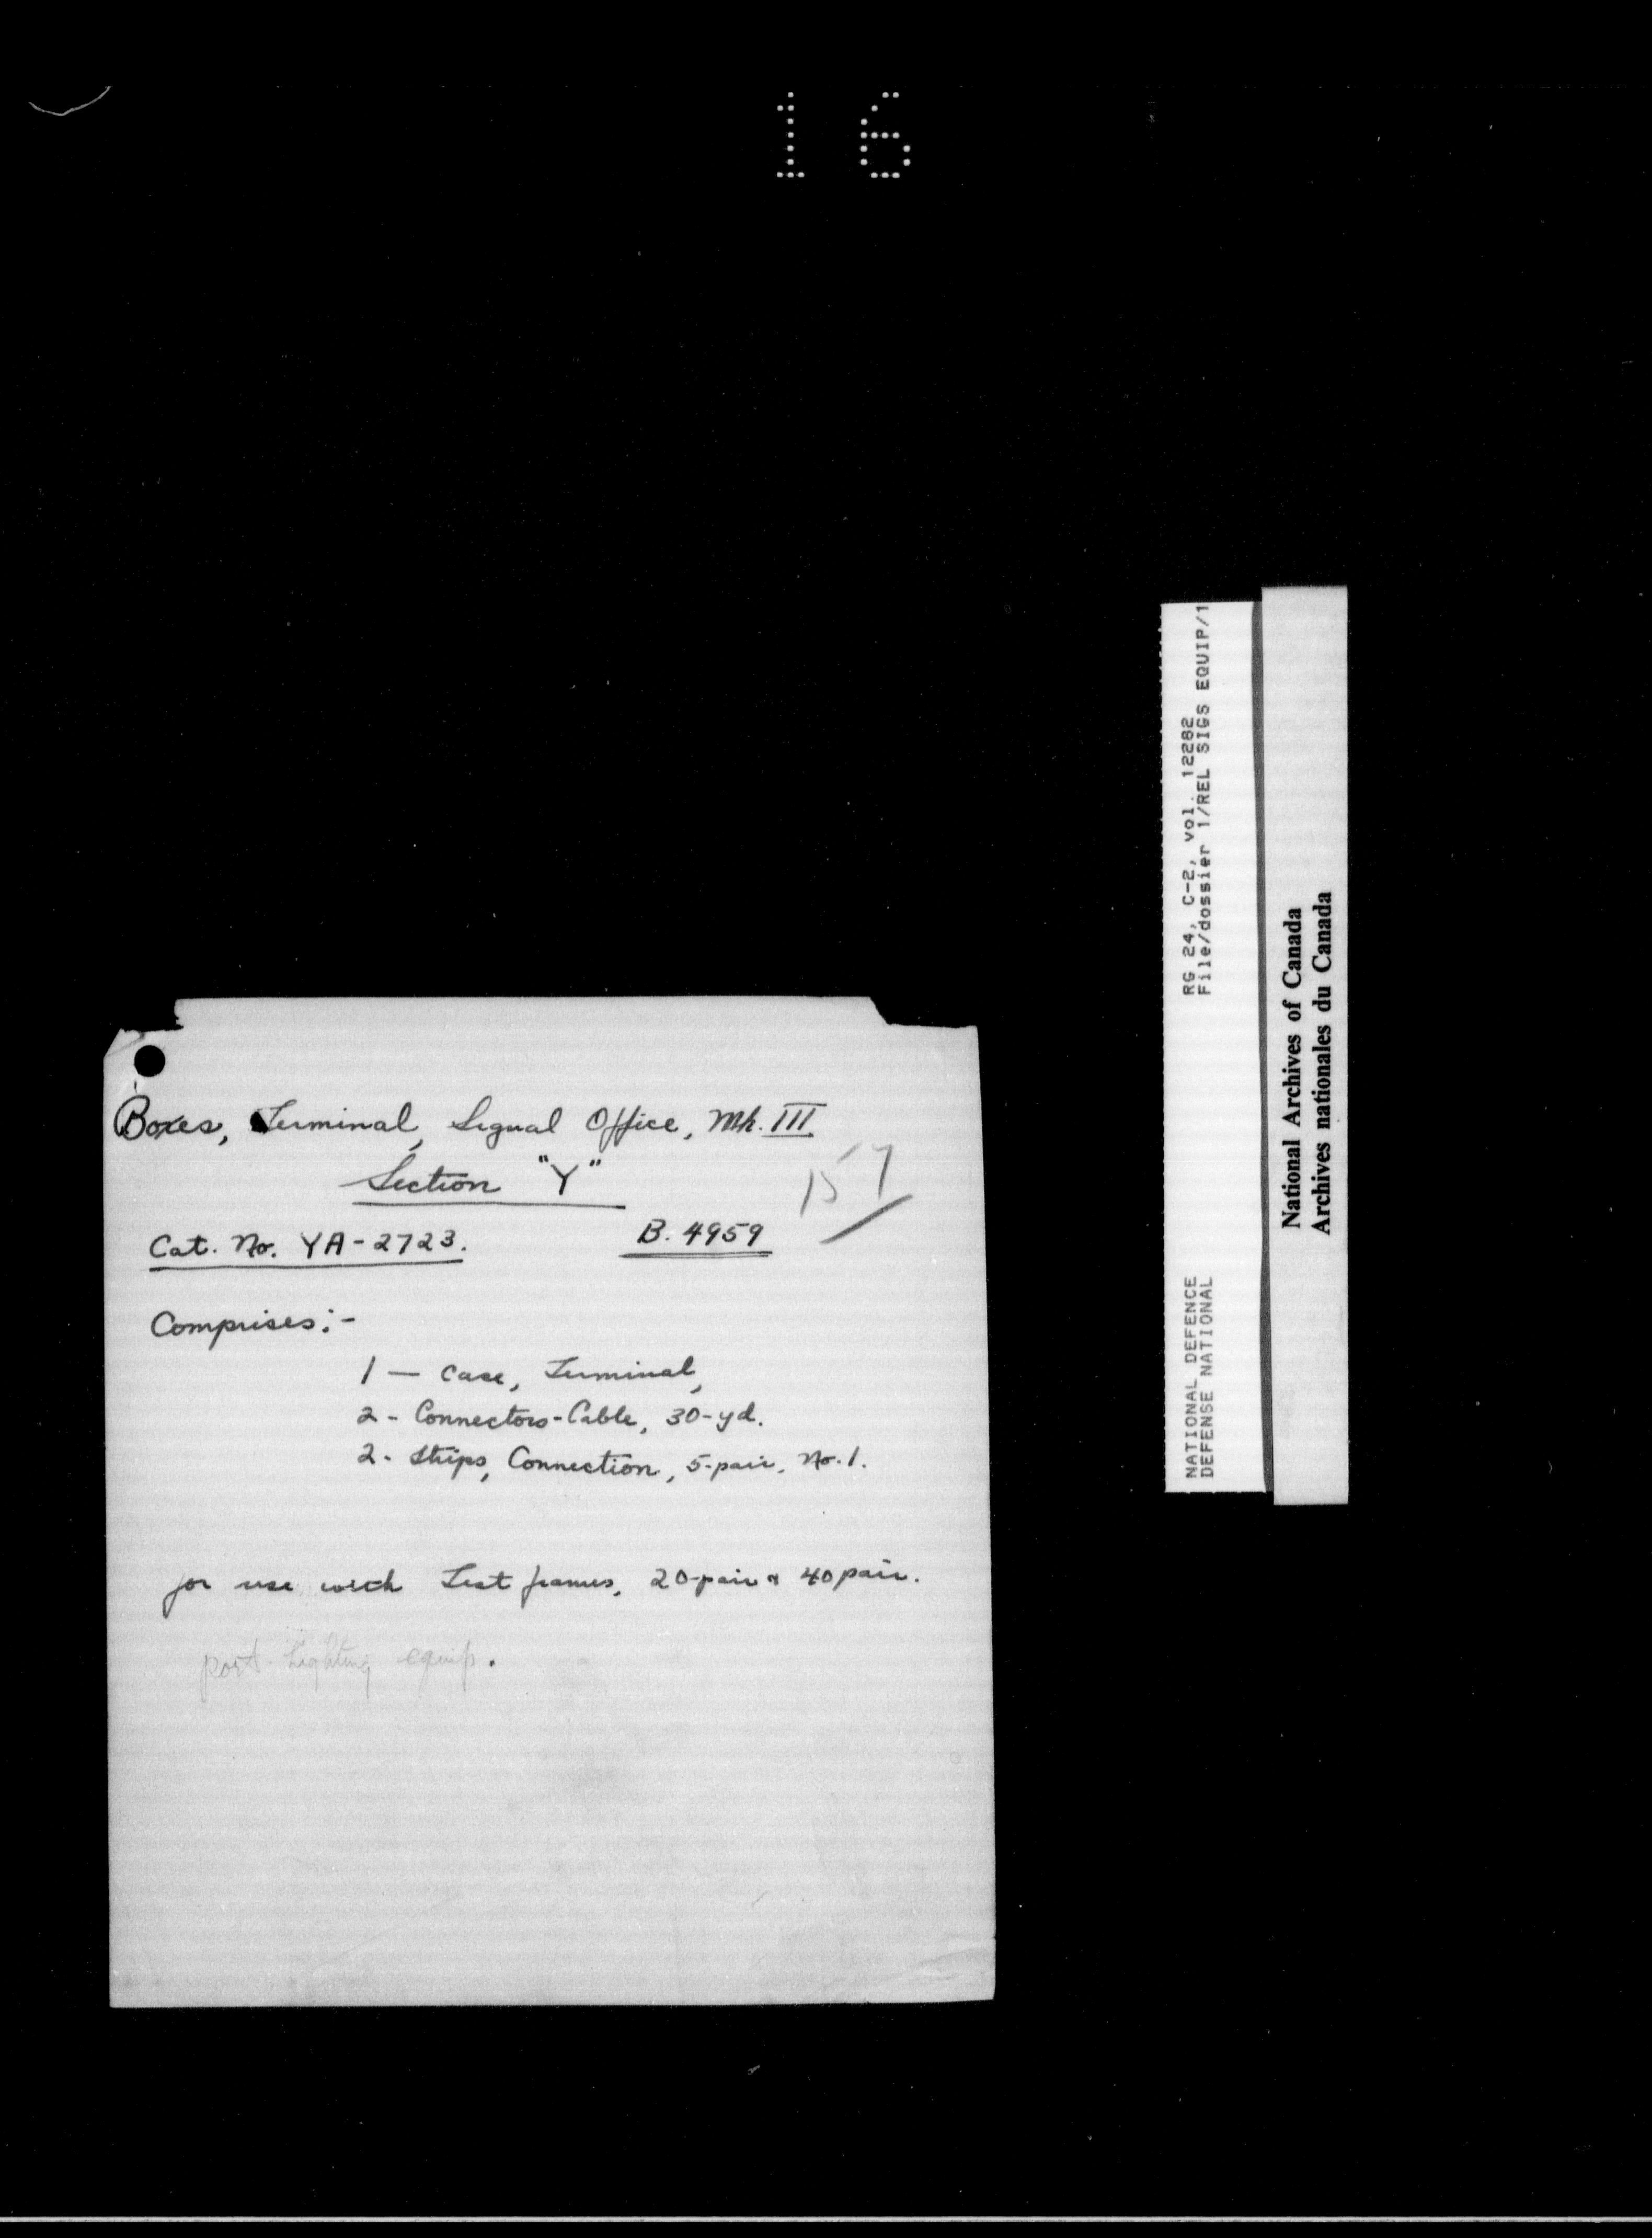 16
Boxes, Terminal, Signal Office, Mk. III
Section "Y"
157
Cat. No. YA-2723.
B. 4959
Comprises:-
1 — Case, Terminal,
2 - Connectors-Cable, 30-yd.
2 - Strips, Connection, 5-pair, No. 1.
for use with Test frames, 20-pair & 40 pair.
port. Lighting equip.
RG 24, C-2, vol. 12282
File/dossier 1/REL SIGS EQUIP/1
NATIONAL DEFENCE
DEFENSE NATIONAL
National Archives of Canada
Archives nationales du Canada